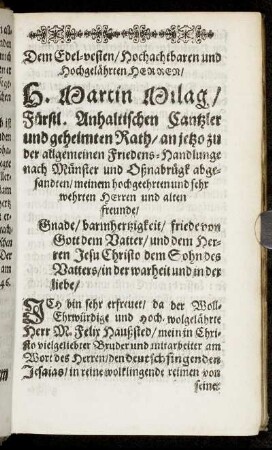 Dem Edel-vesten/ Hochachtbaren und
Hochgelährten HERREN/
H. Martin Milag/
Fürstl. Anhaltischen Cantzler
und geheimten Rath/ an jetzo zu
der allgemeinen Friedens-Handlunge
nach Münster und Oßnabrügk abge-
sandten/ meinem hochgeehrten und sehr
wehrten Herren und alten
freunde/
Gnade/ barmhertzigkeit/ friede von
Gott dem Vatter/ und dem Her-
ren Jesu Christo dem Sohn des
Vatters/ in der warheit und in der
liebe/
ICh bin sehr erfreuet/ da der Woll-
Ehrwürdige und Hoch. wolgelährte
Herr M. Felix Haußsted/ mein in Chri-
sto vielgeliebter Bruder und mitarbeiter am
Wort des Herren/ den deutsch singenden
Jesaias/ in reine wolklingende reimen von
seine